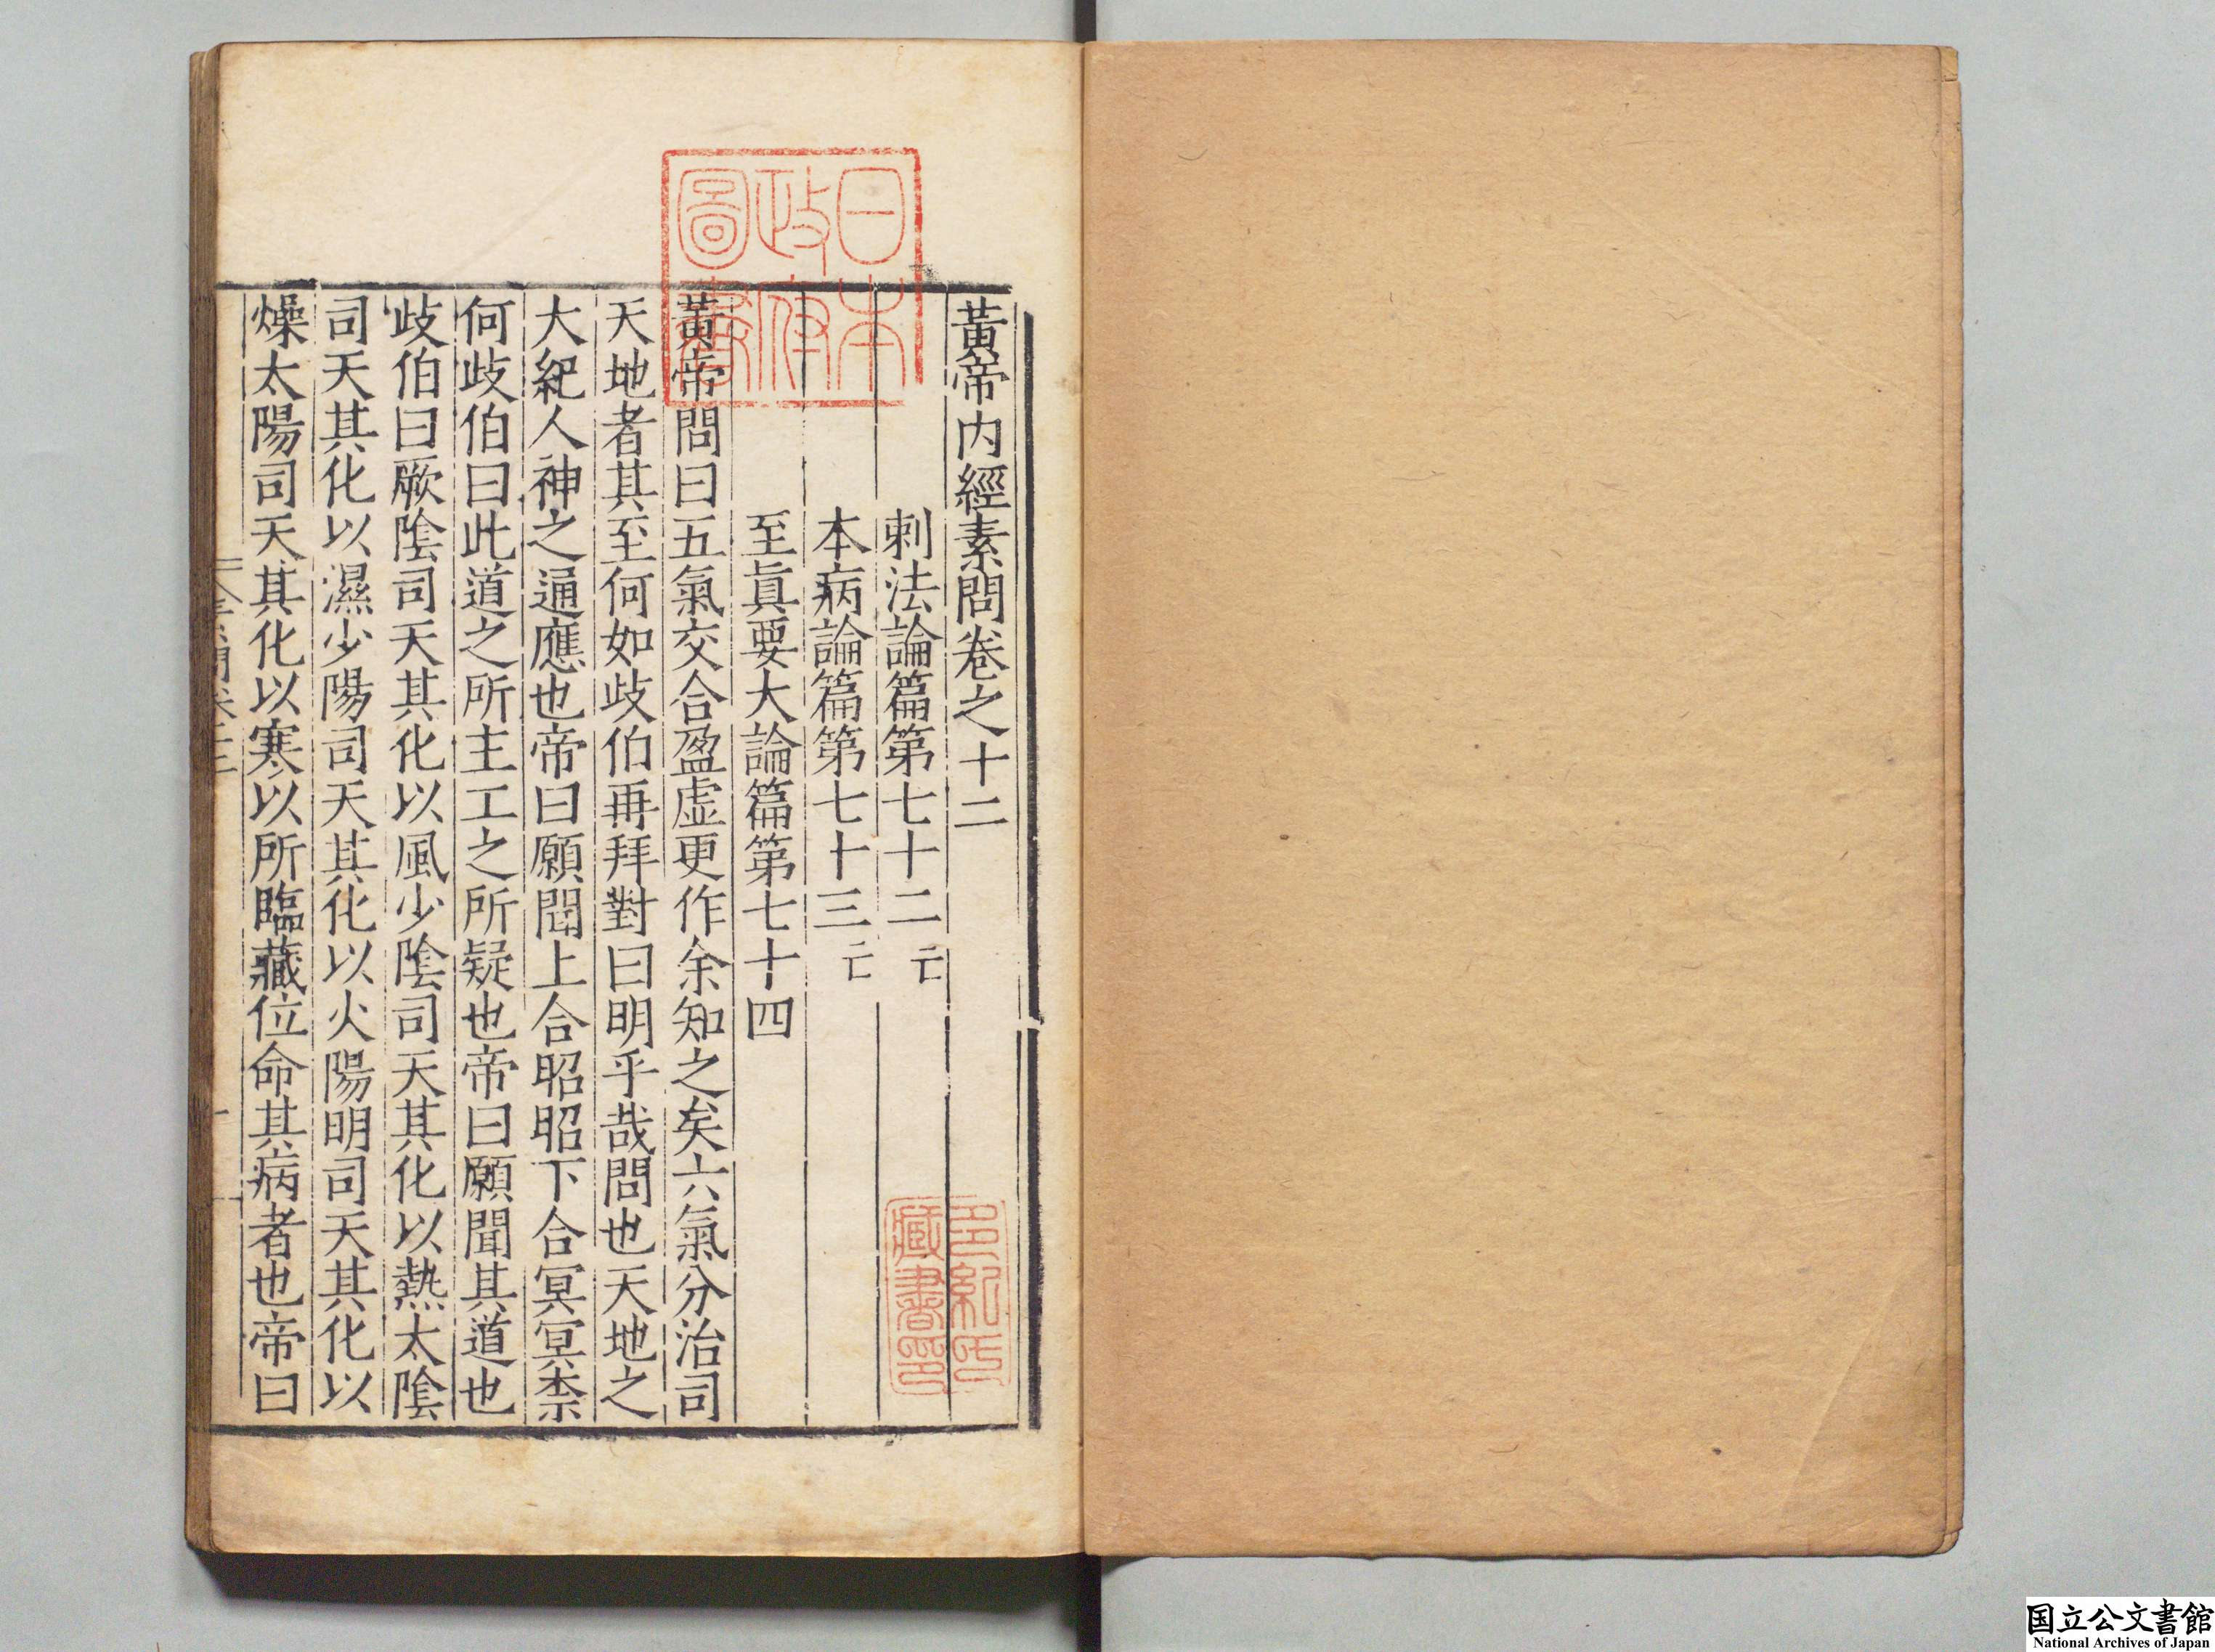 黃帝内經素問卷之十二
刺法論篇第七十二亡
本病論篇第七十三亡
至眞要大論篇第七十四
黃帝問曰五氣交合盈虛更作余知之矣六氣分治司
天地者其至何如歧伯再拜對曰明乎哉問也天地之
大紀人神之通應也帝曰願聞上合昭昭下合冥冥柰
何歧伯曰此道之所主工之所疑也帝曰願聞其道也
歧伯曰厥陰司天其化以風少陰司天其化以熱太陰
司天其化以濕少陽司天其化以火陽明司天其化以
燥太陽司天其化以寒以所臨藏位命其病者也帝曰
日本
政府
圖書
藏書印
国立公文書館
National Archives of Japan